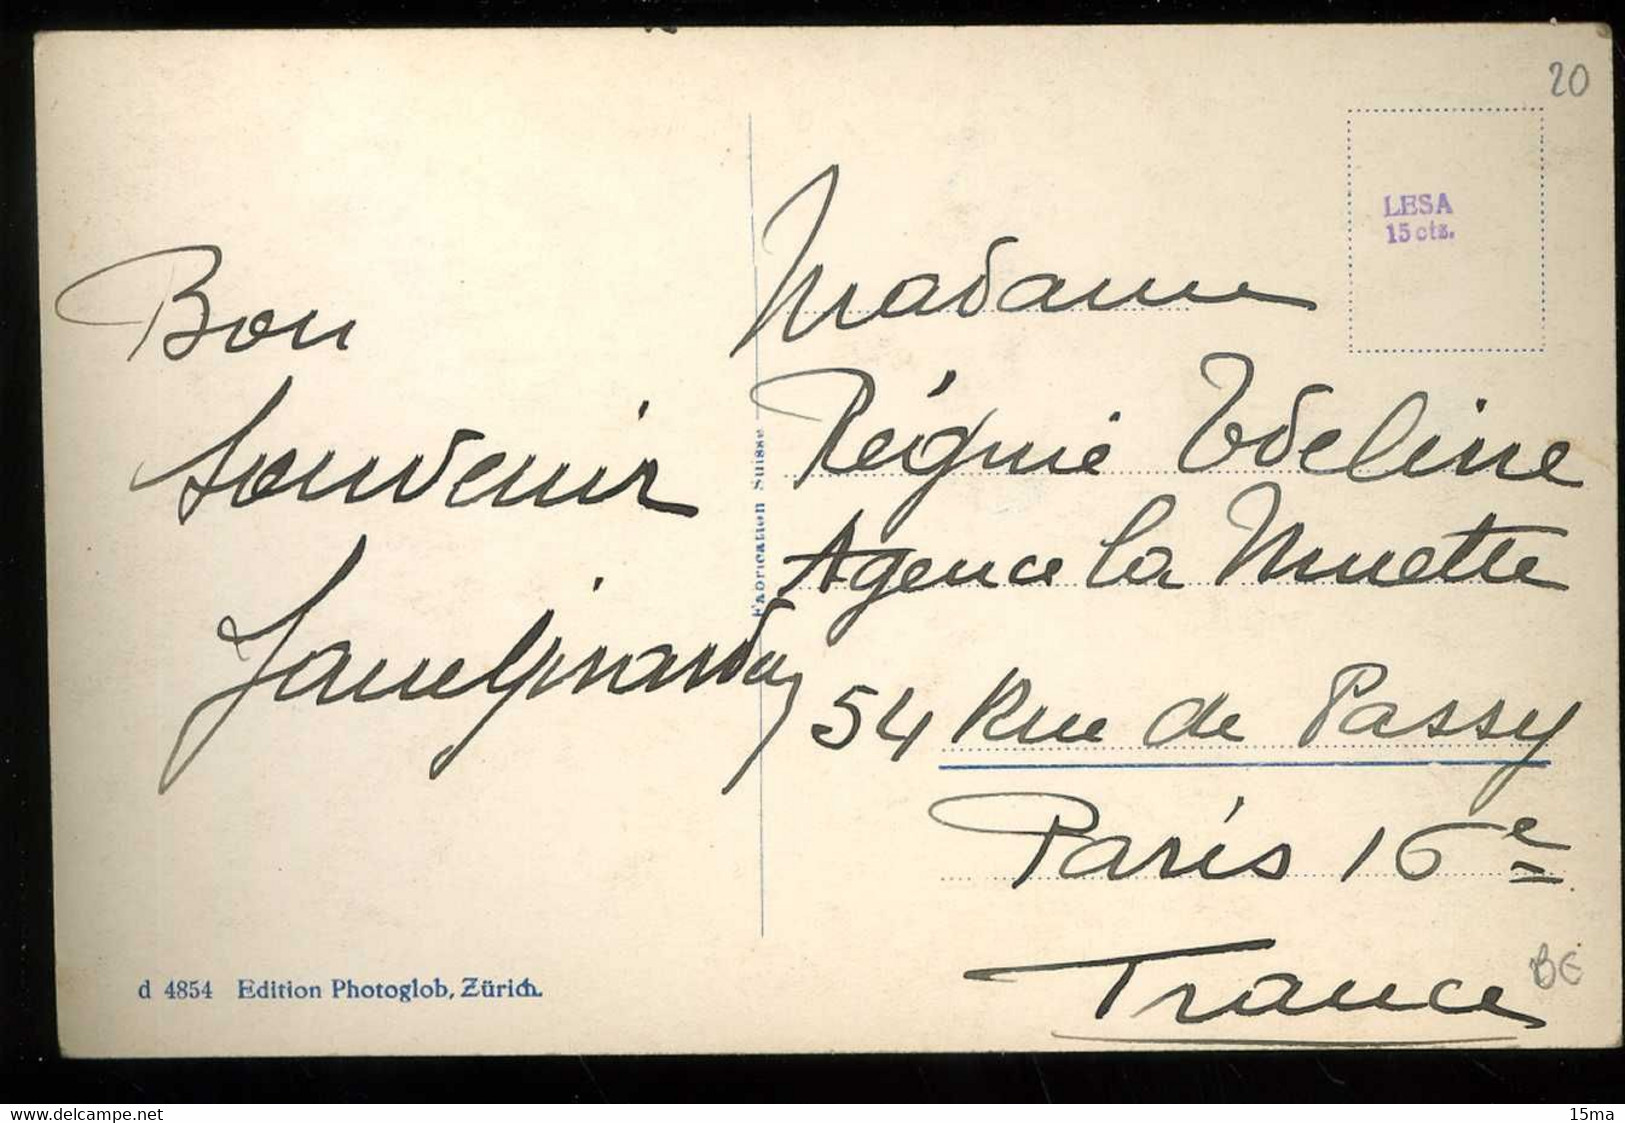 20
LESA
15 cts.
Bon
Souvenir
Madame
Régnié
Agence la Muette
54 Rue de Passy
Paris 16e
France
BE
Fabrication Suisse
d 4854 Edition Photoglob, Zürich.
www.delcampe.net
15ma